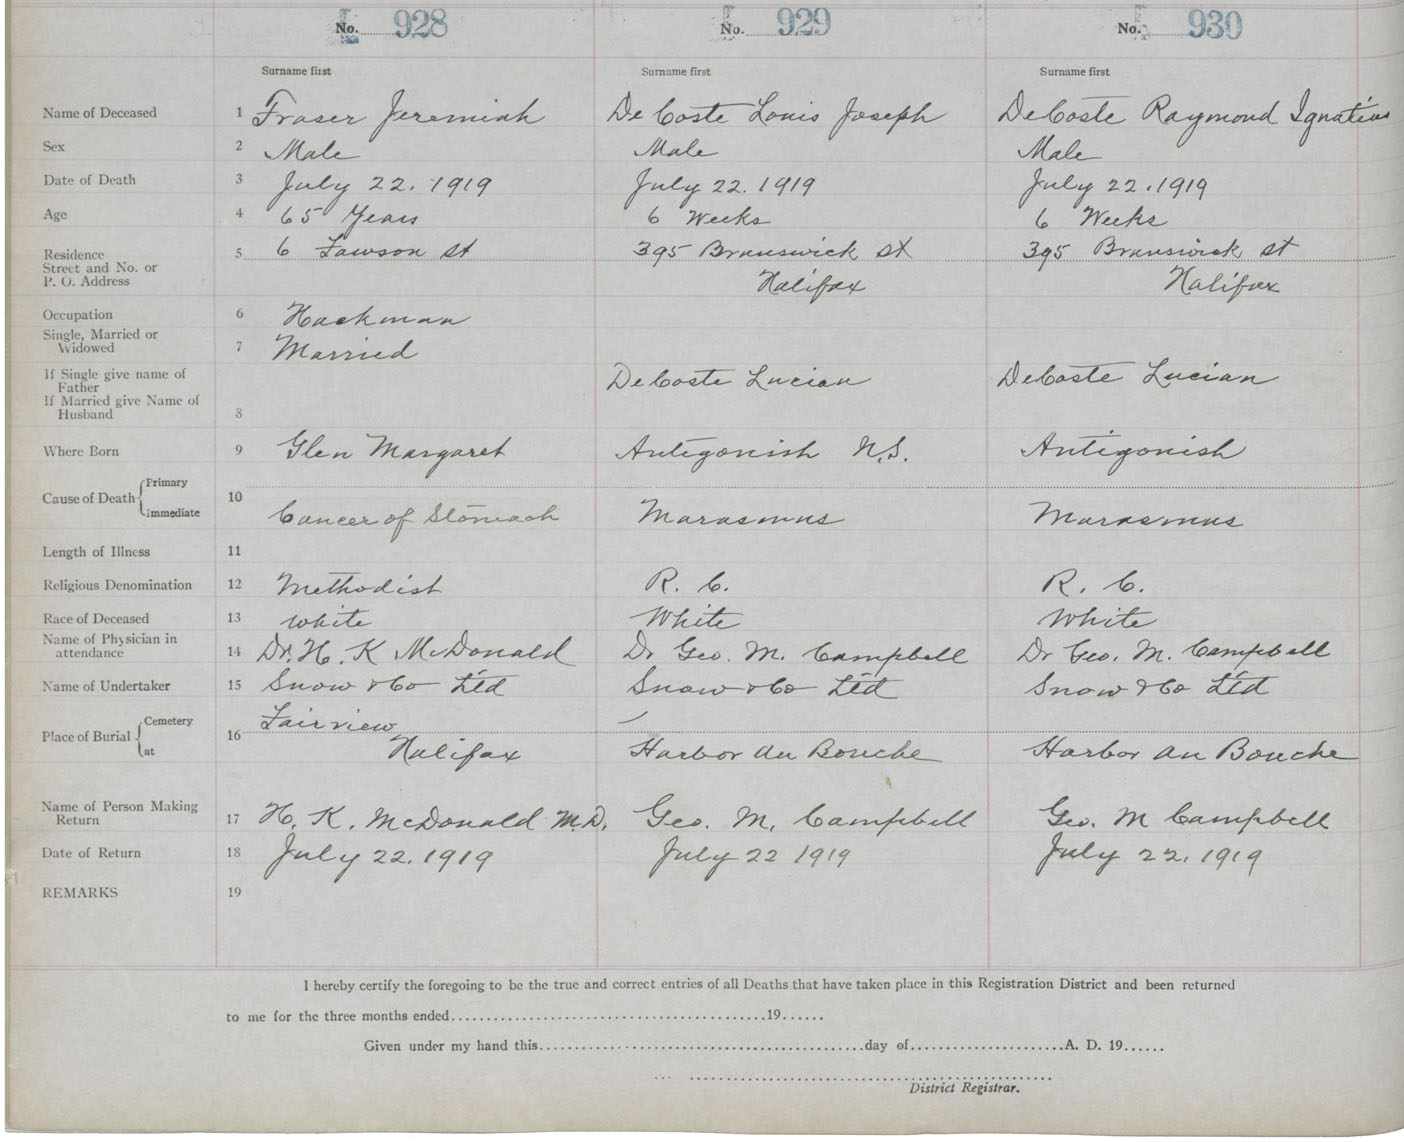 No. 928 No. 929 No. 930
Surname first Surname first Surname first
Name of Deceased 1 Fraser Jeremiah DeCoste Louis Joseph DeCoste Raymond Ignatius
Sex 2 Male Male Male
Date of Death 3 July 22. 1919 July 22. 1919 July 22. 1919
Age 4 65 Years 6 Weeks 6 Weeks
Residence
Street and No. or 5 6 Lawson St 395 Brunswick St 395 Brunswick St
P. O. Address Halifax Halifax
Occupation 6 Hackman
Single, Married or
Widowed 7 Married
If Single give name of
Father DeCoste Lucian DeCoste Lucian
If Married give Name of
Husband 8
Where Born 9 Glen Margaret Antigonish N.S. Antigonish
Primary
Cause of Death 10
Immediate Cancer of Stomach Marasmus Marasmus
Length of Illness 11
Religious Denomination 12 Methodist R. C. R. C.
Race of Deceased 13 White White White
Name of Physician in
attendance 14 Dr. H. K McDonald Dr Geo. M. Campbell Dr Geo. M. Campbell
Name of Undertaker 15 Snow & Co Ltd Snow & Co Ltd Snow & Co Ltd
Cemetery Fairview
Place of Burial 16
at Halifax Harbor au Bouche Harbor au Bouche
Name of Person Making
Return 17 H. K. McDonald M.D. Geo. M. Campbell Geo. M Campbell
Date of Return 18 July 22. 1919 July 22 1919 July 22. 1919
REMARKS 19
I hereby certify the foregoing to be the true and correct entries of all Deaths that have taken place in this Registration District and been returned
to me for the three months ended..........19......
Given under my hand this..........day of..........A. D. 19......
District Registrar.